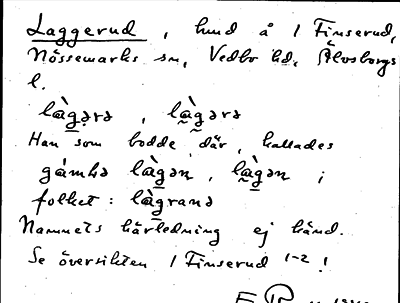 Laggerud, hmd å 1 Finserud,
Nössemarks sn, Vedbo hd, Älvsborgs
l.
làgərə, làgərə
Han som bodde där, kallades
gámha làgən, làgən ;
folket: làgrana
Namnets härledning ej känd.
Se översikten 1 Finserud 1-2 !